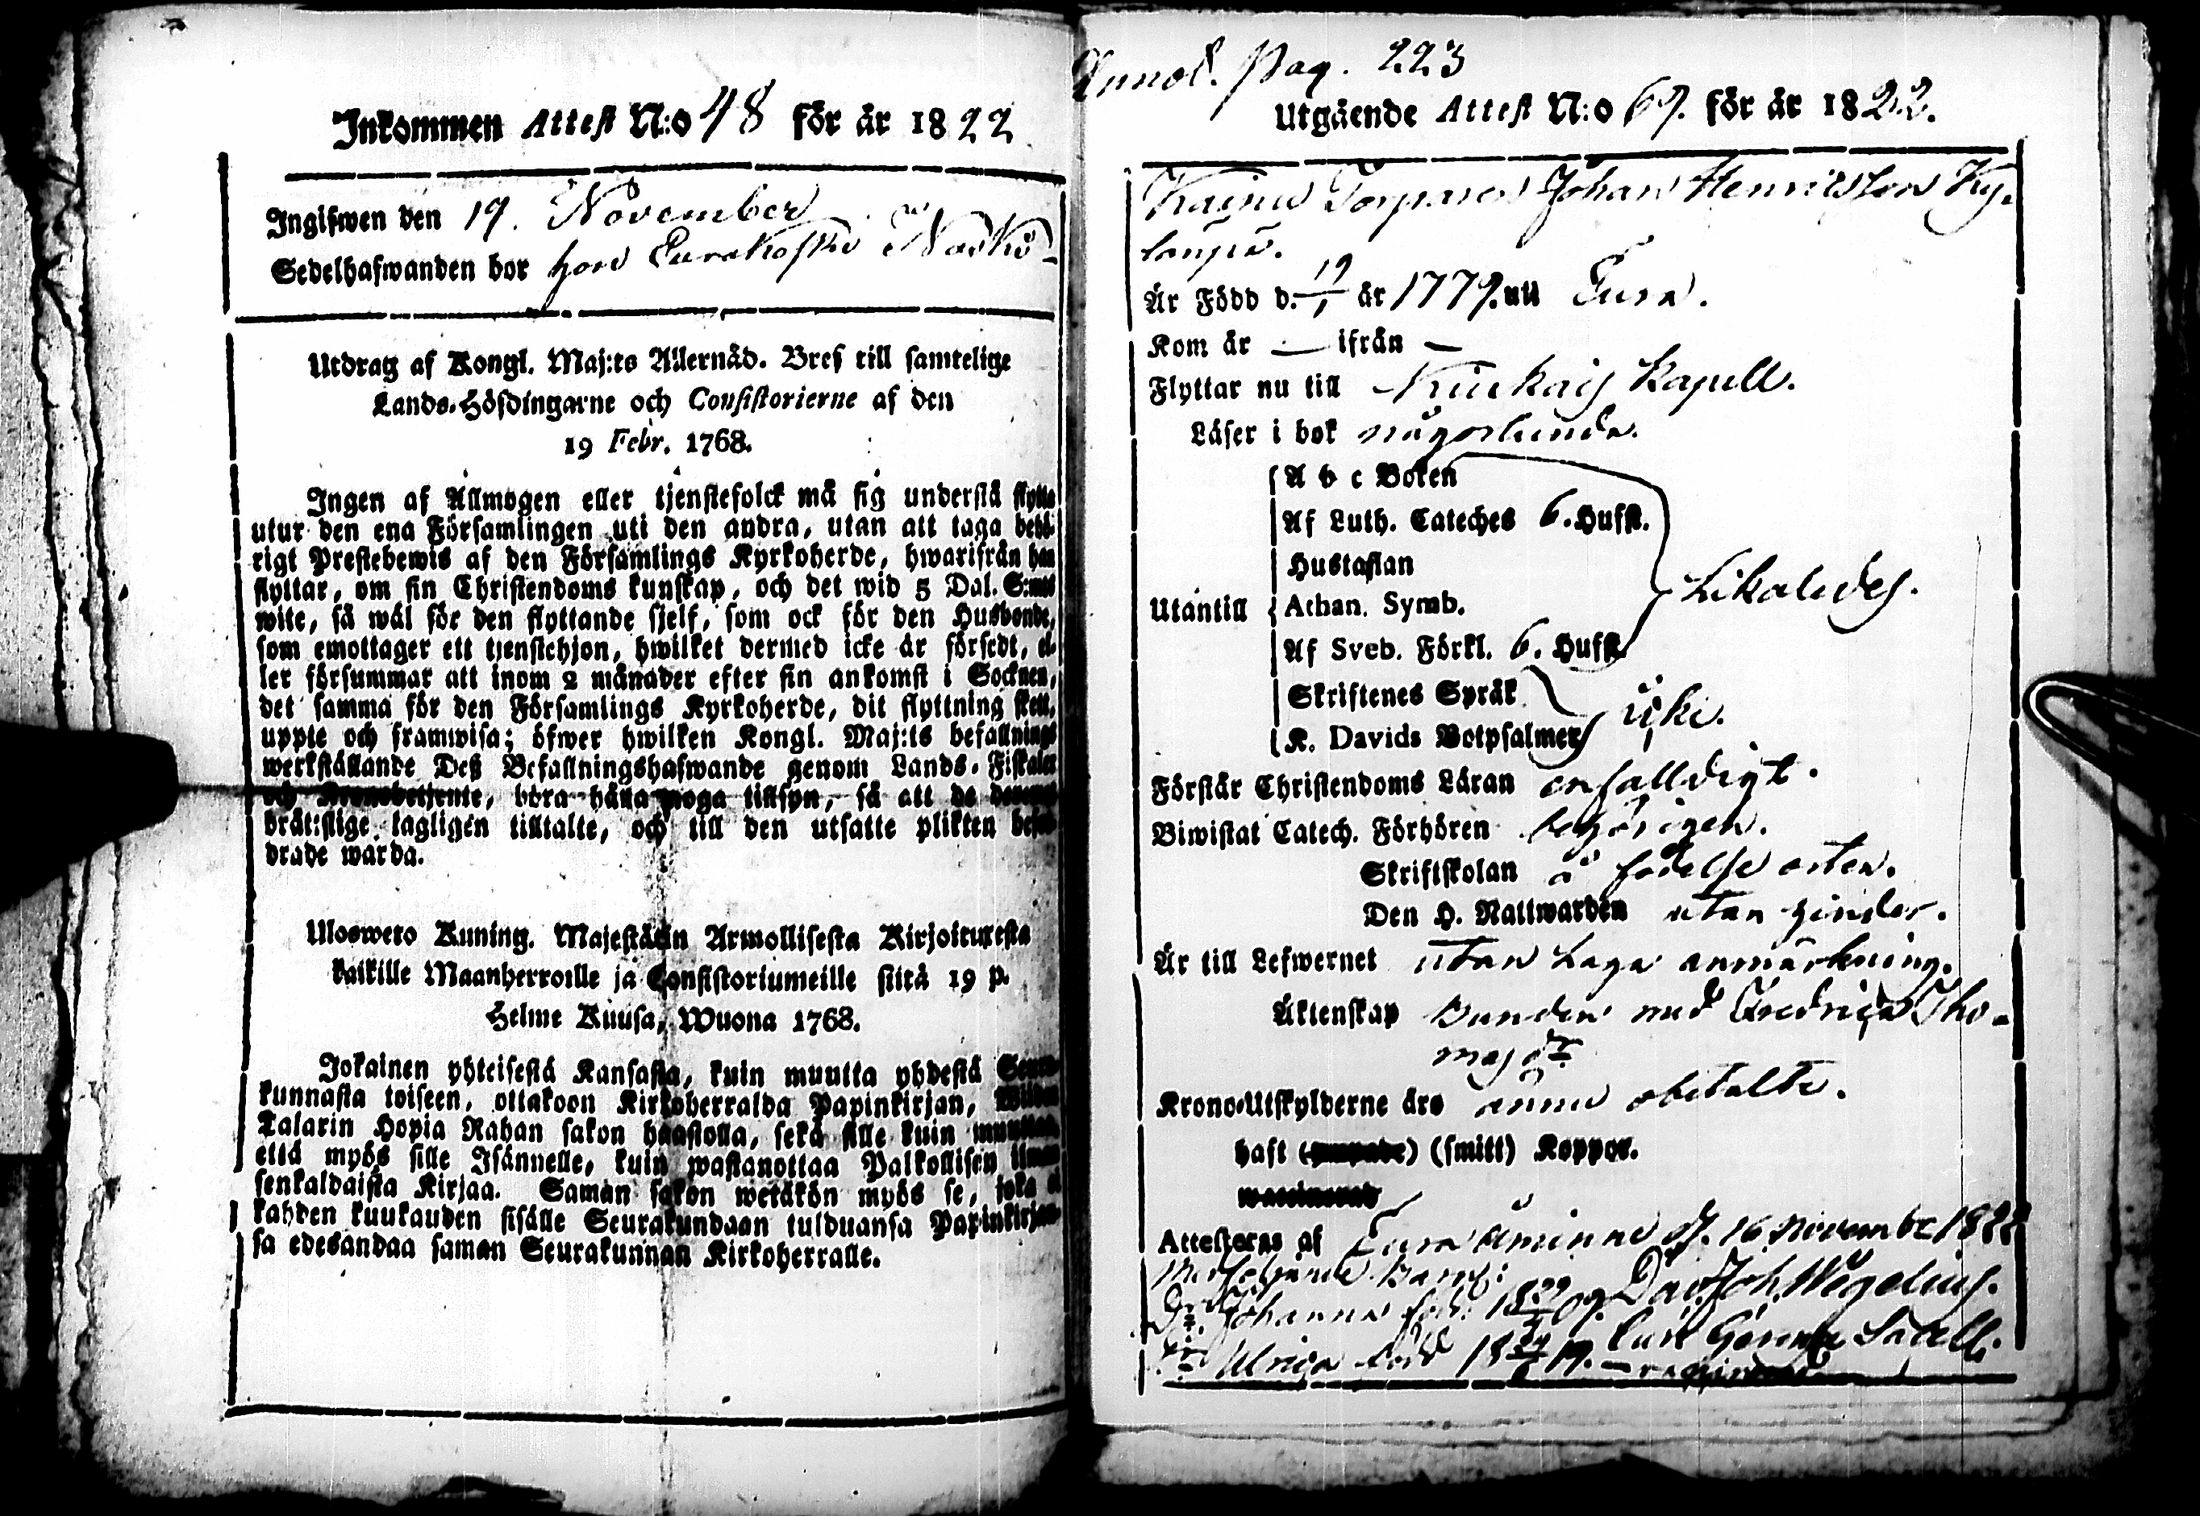 Inkommen Attest N:o 48 för år 1822
Ingifwen den 19. November
Sedelhafwanden bor
Utdrag af Kongl. Maj:ts Allernåd. Bref till samtelige
Lands-Höfdingarne och Consistorierne af den
19 Febr. 1768.
Ingen af Allmogen eller tjenstefolck må sig understå flytta
utur den ena Församlingen uti den andra, utan att taga behö-
rigt Prestebewis af den Församlings Kyrkoherde, hwarifrån han
flyttar, om sin Christendoms kunskap, och det wid 5 Dal. S:mts
wite, så wäl för den flyttande sjelf, som ock för den Husbonde,
som emottager ett tjenstehjon, hwilket dermed icke är försedt, el-
ler försummar att inom 2 månader efter sin ankomst i Socknen,
det samma för den Församlings Kyrkoherde, dit flyttning skett,
uppte och framwisa; öfwer hwilken Kongl. Maj:ts befallnings
werkställande Deß Befallningshafwande genom Lands-Fiskaler
och Kronobetjente, böra hålla noga tillsyn, så att de
brätslige lagligen tilltalte, och till den utsatte plikten befor-
drade warda.
Uloswero Kuning. Majestätin Armollisesta Kirjoituxesta
kaikille Maanherroille ja Consistoriumeille siitä 19 p.
Helme Kuusa, Wuona 1768.
Jokainen yhteisestä Kansasta, kuin muutta yhdestä Seura-
kunnasta toiseen, ottakoon Kirkoherralda Papinkirjan, Wiiden
Talarin Hopia Rahan sakon haastolla, sekä sille kuin muuttaa,
että myös sille Isännelle, kuin wastanottaa Palkollisen ilman
senkaldaista Kirjaa. Saman sakon wetäkön myös se, joka ei
kahden kuukauden sisälle Seurakundaan tulduansa Papinkirjan-
sa edesandaa saman Seurakunnan Kirkoherralle.
Annot. Pag. 223
Utgående Attest N:o 69. för år 1822.
Torparen Johan Henricsson Ky-
Är Född d. 19/1 år 1779. uti Eura.
Kom år — ifrån —
Flyttar nu till Kiukais Kapell.
Läser i bok någorlunda.
Utantill
A b c Boken
Af Luth. Cateches 6. Hufst.
Hustaflan
Athan. Symb.
Af Sveb. Förkl. 6. Hufst.
Likaledes.
Skriftenes Språk
K. Davids Botpsalmer
icke.
Förstår Christendoms Läran enfalldigt.
Biwistat Catech. Förhören
Skriftskolan å födelse orten.
Den H. Nattwarden utan hinder.
Är till Lefwernet utan Laga anmärkning.
Äktenskap Bunden med Fredrica Tho-
mas dr
Krono-Utskylderne äro ännu obetalte.
haft (smitt) Koppor.
Attesteras af Eura Åminne d. 16 November 1822
Medföljande Barn:
Dr. Johanna född 18 09. Dav. Joh. Wegelius.
Dr Ulrica född 18 19.